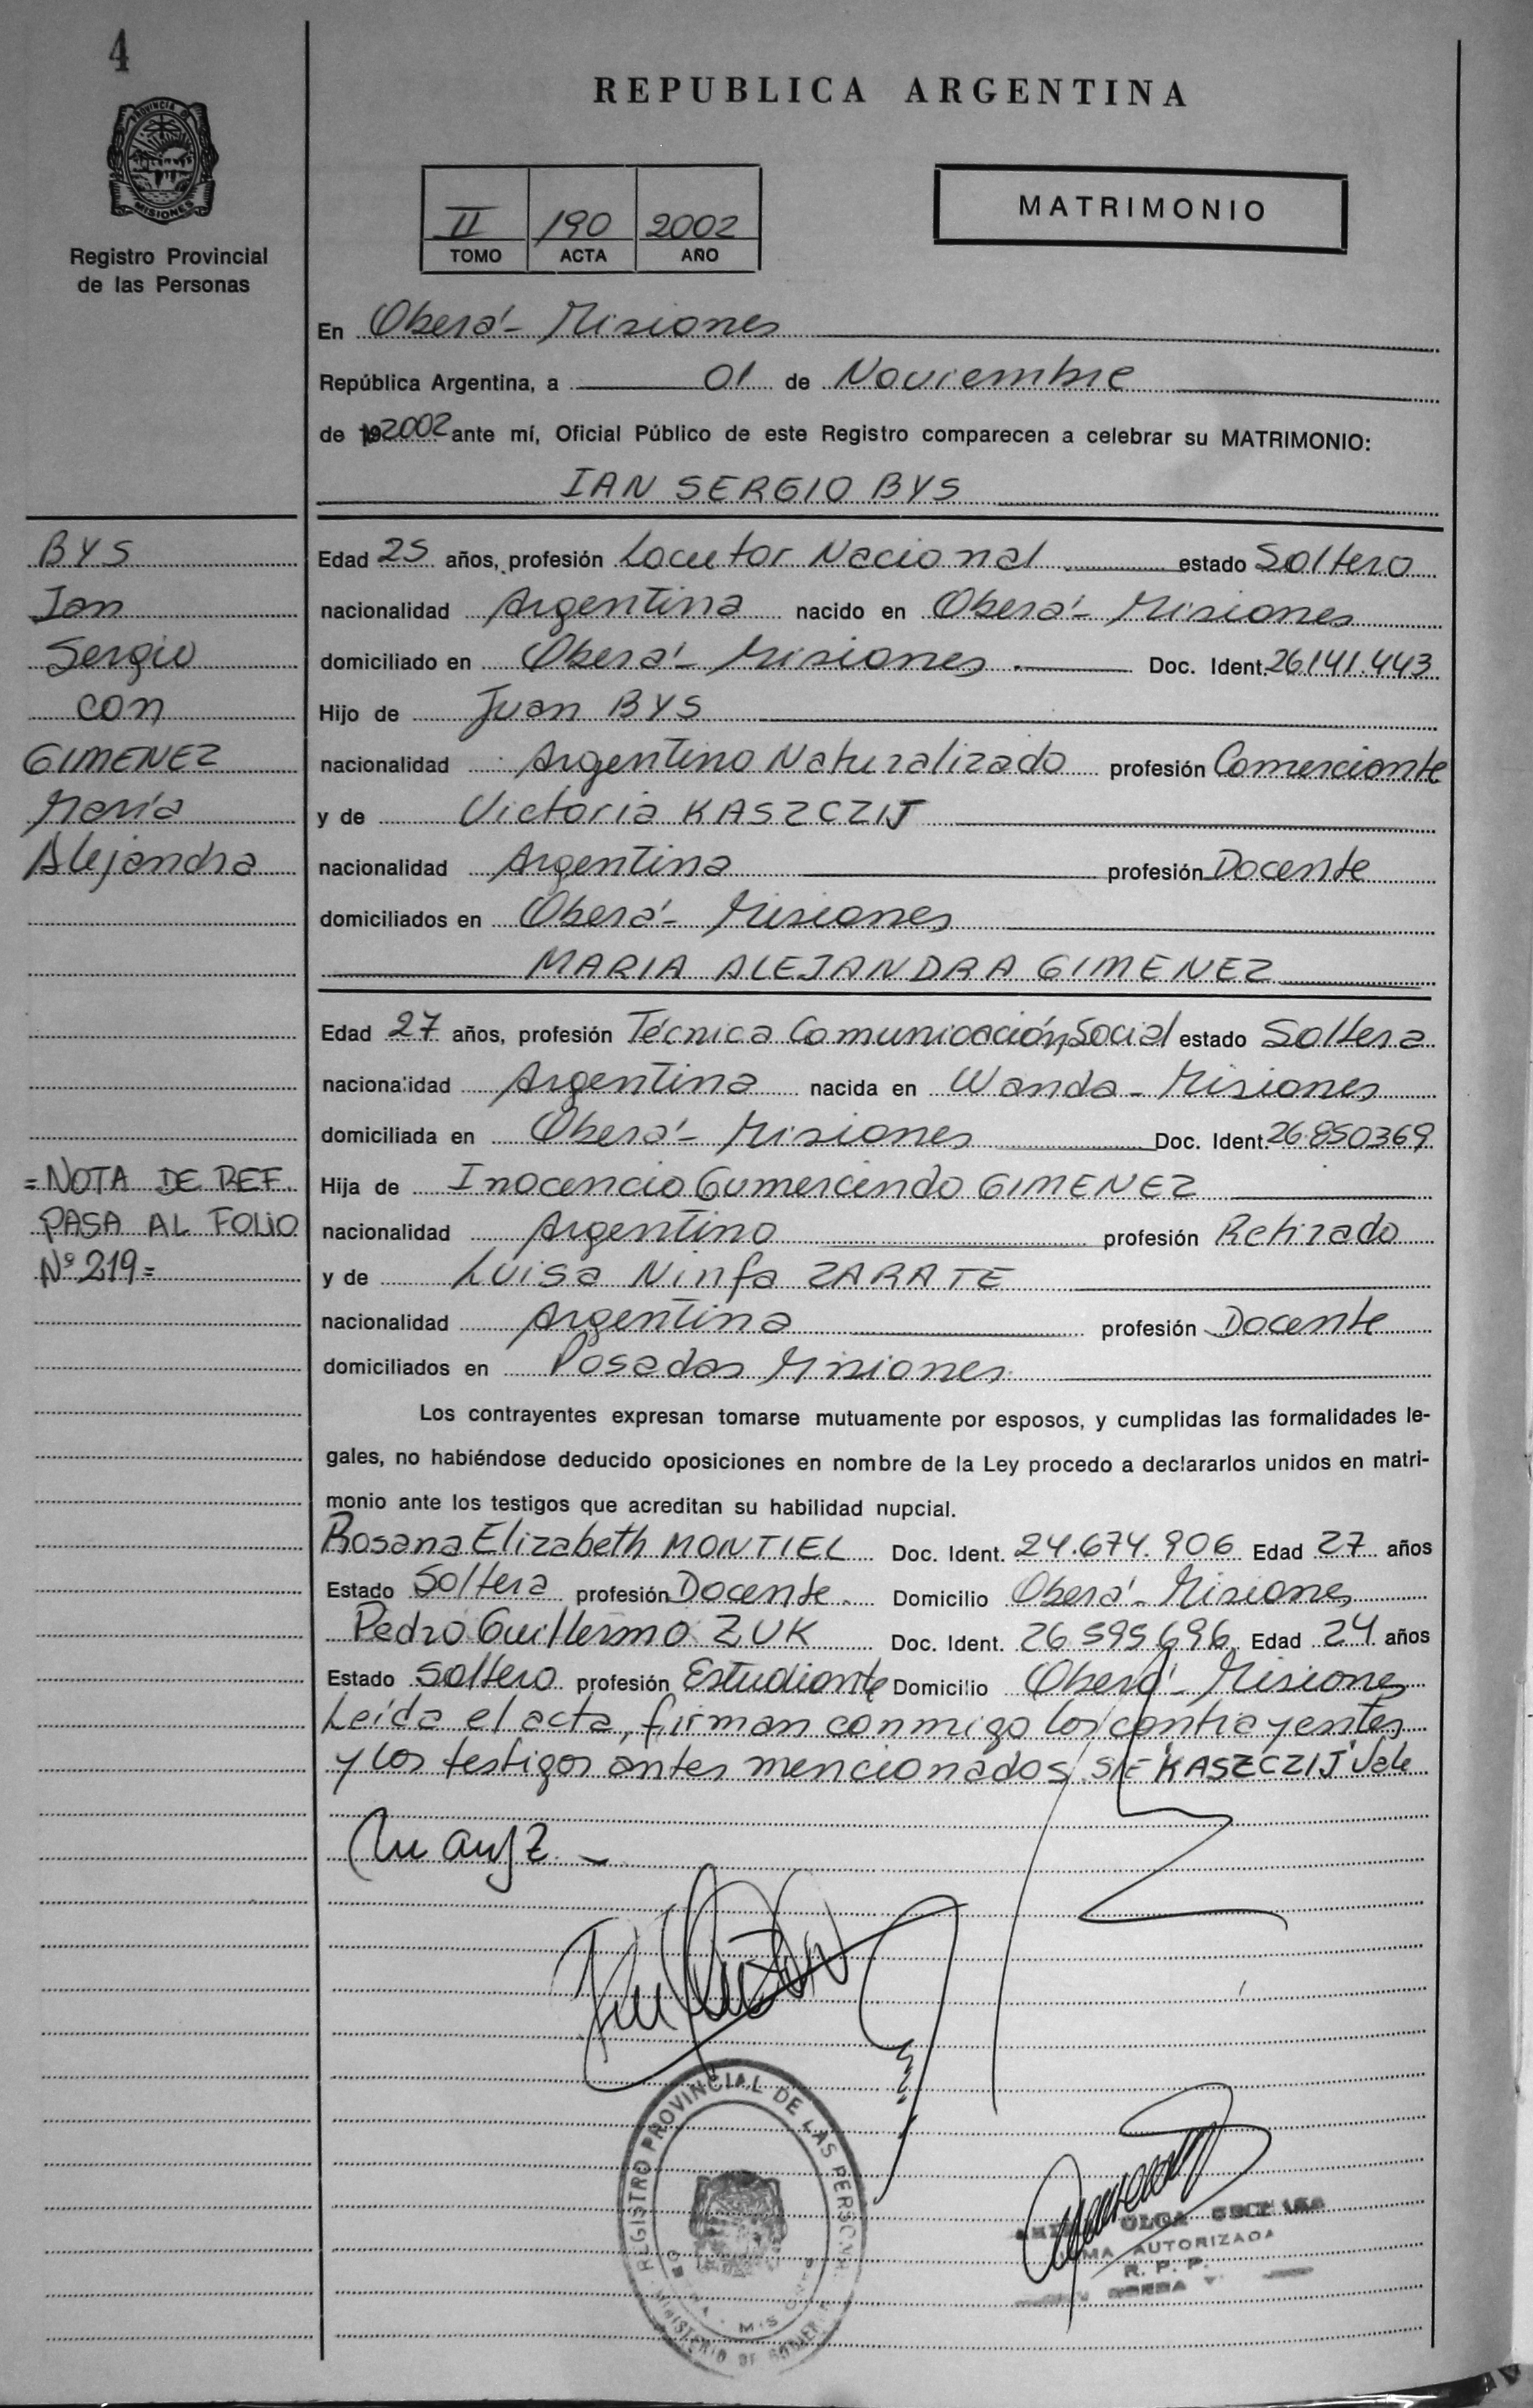 4
REPUBLICA ARGENTINA
PROVINCIA
MISIONES
Registro Provincial
de las Personas
II 190 2002
TOMO ACTA AÑO
MATRIMONIO
En Oberá - Misiones
República Argentina, a 01 de Noviembre
de 192002 ante mí, Oficial Público de este Registro comparecen a celebrar su MATRIMONIO:
IAN SERGIO BYS
BYS
Ian
Sergio
con
GIMENEZ
María
Alejandra
Edad 25 años, profesión Locutor Nacional estado Soltero
nacionalidad Argentina nacido en Oberá - Misiones
domiciliado en Oberá - Misiones Doc. Ident. 26.141.443
Hijo de Juan BYS
nacionalidad Argentino Naturalizado profesión Comerciante
y de Victoria KASZCZIJ
nacionalidad Argentina profesión Docente
domiciliados en Oberá - Misiones
MARIA ALEJANDRA GIMENEZ
Edad 27 años, profesión Técnica Comunicación Social estado Soltera
nacionalidad Argentina nacida en Wanda - Misiones
domiciliada en Oberá - Misiones Doc. Ident. 26.850369
= NOTA DE REF.
PASA AL FOLIO
Nº 219 =
Hija de Inocencio Gumercindo GIMENEZ
nacionalidad Argentino profesión Retirado
y de Luisa Ninfa ZARATE
nacionalidad Argentina profesión Docente
domiciliados en Posadas Misiones
Los contrayentes expresan tomarse mutuamente por esposos, y cumplidas las formalidades le-
gales, no habiéndose deducido oposiciones en nombre de la Ley procedo a declararlos unidos en matri-
monio ante los testigos que acreditan su habilidad nupcial.
Rosana Elizabeth MONTIEL Doc. Ident. 24.674.906 Edad 27 años
Estado Soltera profesión Docente. Domicilio Oberá - Misiones
Pedro Guillermo ZUK Doc. Ident. 26595696 Edad 24 años
Estado soltero profesión Estudiante Domicilio Oberá - Misiones
Leída el acta, firman conmigo los contrayentes
y los testigos antes mencionados. S/E "KASZCZIJ" Vale
REGISTRO PROVINCIAL DE LAS PERSONAS
MINISTERIO DE
OLGA
AUTORIZADA
R. P. P.